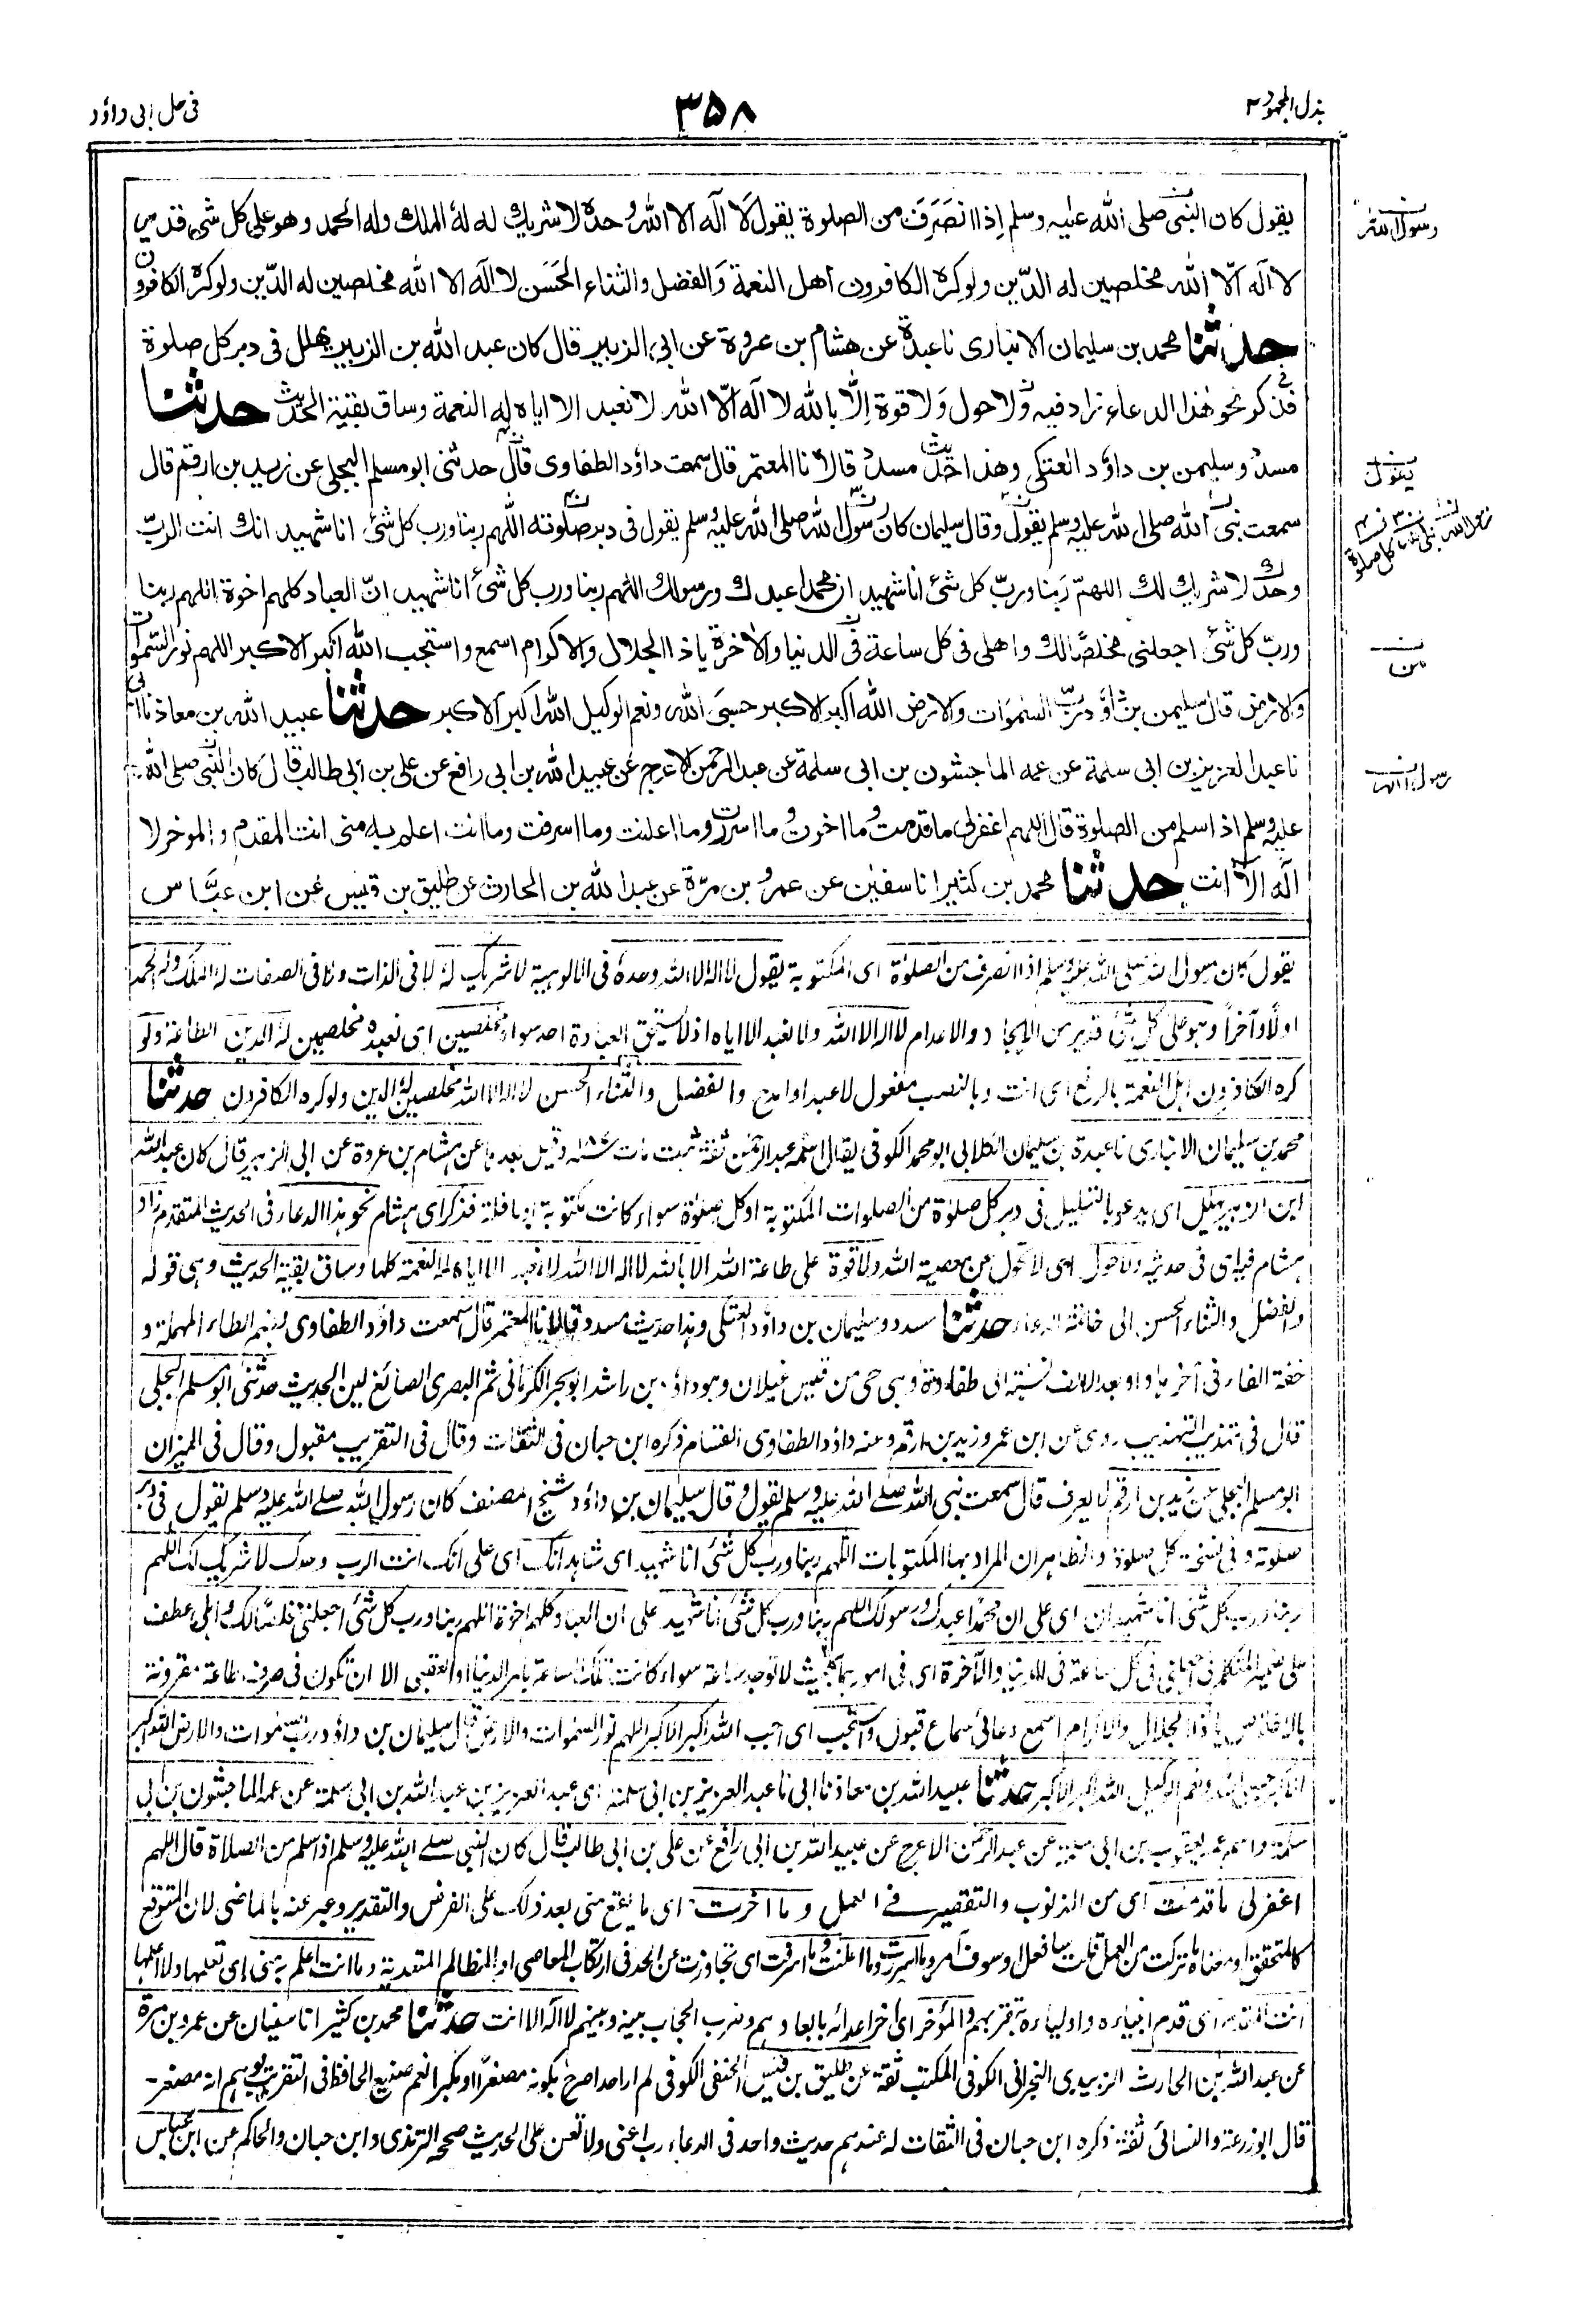 بذل المجهود ٢
٣٥٨
فى حل ابى داؤد
يقول كان النبى صلى الله عليه وسلم اذا انصَرَفَ من الصلوة يقول لَا اله الا الله وحده لا شريك له له الملك وله الحمد وهو على كل شىء قدير
لا اله الّا الله مخلصين له الدّين ولو كره الكافرون اهل النعمة وَالفضل والثناء الحَسَن لا اله الا الله مخلصين له الدّين ولو كره الكافرون
حدثنا محمد بن سليمان الانبارى نا عبدة عن هشام بن عروة عن ابى الزبير قال كان عبد الله بن الزبير يهلل فى دبر كل صلوة
فذكر نحو هذا الدعاء زاد فيه ولا حول وَلا قوة اِلّا بالله لا اله الّا الله لا نعبد الا اياه له النعمة وساق بقية الحديث حدثنا
مسدد وسليمن بن داؤد العتكى وهذا حديث مسدد قالا نا المعتمر قال سمعت داؤد الطفاوى قال حدثنى ابو مسلم البجلى عن زيد بن ارقم قال
سمعت نبى الله صلى الله عليه وسلم يقول وقال سليمان كان رسول الله صلى الله عليه وسلم يقول فى دبر صلوته اللهم ربنا ورب كل شئ انا شهيد انك انت الربّ
وحدك لا شريك لك اللهمّ رَبنا وربّ كل شئ انا شهيد ان محمدا عبدك ورسولك اللهم ربنا ورب كل شئ انا شهيد انّ العباد كلهم اخوة اللهم ربنا
وربّ كل شئ اجعلنى مخلصًا لك واهلى فى كل ساعة فى الدنيا والاخرة يا ذا الجلال والاكرام اسمع واستجب الله اكبر الاكبر اللهم نور السموات
والارض قال سليمن بن داؤد ربّ السموَات والارض الله اكبر الاكبر حسبىَ الله ونعم الوكيل الله اكبر الاكبر حدثنا عبيد الله بن معاذ نا ابى
نا عبد العزيز بن ابى سلمة عن عمه الماجشون بن ابى سلمة عن عبد الرحمن الاعرج عن عبيد الله بن ابى رافع عن على بن ابى طالب قال كان النبى صلى الله
عليه وسلم اذا سلم من الصلوة قال اللهم اغفر لى ما قدمت وما اخرت وما اسررت وما اعلنت وما اسرفت وما انت اعلم به منى انت المقدم والموخر لا
اله الّا انت حدثنا محمد بن كثير انا سفين عن عمرو بن مرّة عن عبد الله بن الحارث عن طليق بن قيس عن ابن عبّاس
رسول الله
يقول
كل صلوة
رسول الله
يقول كان رسول الله صلى الله عليه وسلم اذا انصرف من الصلوٰة اى المكتوبة يقول لا اله الا الله وحده فى الالوهية لا شريك له لا فى الذات ولا فى الصفات له الملك وله الحمد
اولاً وآخراً وهو على كل شئ قدير من الايجاد والاعدام لا اله الا الله ولا نعبد الا اياه اذ لا يستحق العبادة احد سواه مخلصين اى نعبده مخلصين له الدين الطاعة ولو
كره الكافرون اهل النعمة بالرفع اى انت وبالنصب مفعول لاعبد او امدح والفضل والثناء الحسن لا اله الا الله مخلصين له الدين ولو كره الكافرون حدثنا
محمد بن سليمان الانبارى نا عبدة بن سليمان الكلابى ابو محمد الكوفى يقال اسمه عبد الرحمن ثقة ثبت مات ١٨٧ه وقيل بعدها عن هشام بن عروة عن ابى الزبير قال كان عبد الله
ابن الزبير يهلل اى يدعو بالتهليل فى دبر كل صلوٰة من الصلوات المكتوبة او كل صلوٰة سواء كانت مكتوبة او نافلة فذكر اى هشام نحو هذا الدعاء فى الحديث المتقدم زاد
هشام فيه اى فى حديثه ولا حول اى لا تحول عن معصية الله ولا قوة على طاعة الله الا بالله لا اله الا الله لا نعبد الا اياه له النعمة كلها وساق بقية الحديث وهى قوله
والفضل والثناء الحسن الى خاتمة الدعاء حدثنا مسدد وسليمان بن داؤد العتكى وهذا حديث مسدد قالا نا المعتمر قال سمعت داؤد الطفاوى بضم الطاء المهملة و
خفة الفاء فى آخرها واو بعد الالف نسبة الى طفاوة وهى حى من قيس غيلان وهو داؤد بن راشد ابو بحر الكرمانى ثم البصرى الصائغ لين الحديث حدثنى ابو مسلم البجلى
قال فى تهذيب التهذيب روى عن ابن عمر وزيد بن ارقم وعنه داؤد الطفاوى القسام ذكره ابن حبان فى الثقات وقال فى التقريب مقبول وقال فى الميزان
ابو مسلم البجلى عن زيد بن ارقم لا يعرف قال سمعت نبى الله صلے الله عليه وسلم يقول وقال سليمان بن داؤد شيخ المصنف كان رسول الله صلے الله عليه وسلم يقول فى دبر
صلوته وفى نسخة كل صلوة والظاهر ان المراد بها المكتوبات اللهم ربنا ورب كل شئ انا شهيد اى شاهد انك اى على انك انت الرب وحدك لا شريك لك اللهم
ربنا ورب كل شئ انا شهيد ان اى على ان محمدا عبدك ورسولك اللهم ربنا ورب كل شئ انا شهيد على ان العباد كلهم اخوة اللهم ربنا ورب كل شئ اجعلنى مخلصًا لك واهلى عطف
على ضمير المتكلم فى اجعلنى فى كل ساعة فى الدنيا والآخرة اى فى امورهما بحيث لا توجد ساعة سواء كانت تلك الساعة بامر الدنيا او العقبى الا ان تكون فى صرف طاعة مقرونة
بالاخلاص يا ذا الجلال والاكرام اسمع دعائى سماع قبول واستجب اى اجب الله اكبر الاكبر اللهم نور السموات والارض قال سليمان بن داؤد رب السموات والارض الله اكبر
الاكبر حسبى الله ونعم الوكيل الله اكبر الاكبر حدثنا عبيد الله بن معاذ نا ابى نا عبد العزيز بن ابى سلمة اى عبد العزيز بن عبد الله بن ابى سلمة عن عمه الماجشون بن ابى
سلمة واسمه يعقوب بن ابى سلمة عن عبد الرحمن الاعرج عن عبيد الله بن ابى رافع عن على بن ابى طالب قال كان النبى صلے الله عليه وسلم اذا سلم من الصلاة قال اللهم
اغفر لى ما قدمت اى من الذنوب والتقصير فے العمل وما اخرت اى ما يقع منى بعد ذلك على الفرض والتقدير وعبر عنه بالماضى لان المتوقع
كالمتحقق او معناه ما تركت من العمل قلت سافعل او سوف امر وما اسررت وما اعلنت وما اسرفت اى تجاوزت عن الحد فى ارتكاب المعاصى او المظالم المتعدية وما انت اعلم به منى اى تعلمها ولا اعلمها
انت المقدم اى قدم انبياءه واولياءه بقربهم والمؤخر اى اخر اعدائه بابعادهم وضرب الحجاب بينه وبينهم لا اله الا انت حدثنا محمد بن كثير انا سفيان عن عمرو بن مرة
عن عبد الله بن الحارث الزبيدى النجرانى الكوفى المكتب ثقة عن طليق بن قيس الحنفى الكوفى لم ار احدا صرح بكونه مصغرًا او مكبرا نعم صنيع الحافظ فى التقريب يوهم انه مصغر
قال ابو زرعة والنسائى ثقة ذكره ابن حبان فى الثقات له عندهم حديث واحد فى الدعاء رب اعنى ولا تعن على الحديث صححه الترمذى وابن حبان والحاكم عن ابن عباس